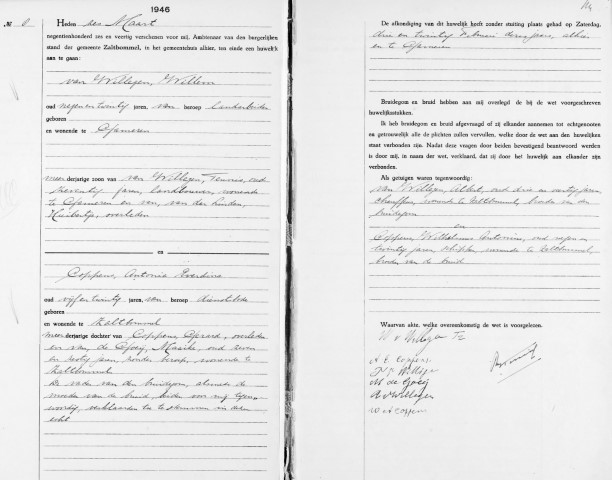 1946
№ 8
Heden zes Maart
negentienhonderd zes en veertig verschenen voor mij, Ambtenaar van den burgerlijken
stand der gemeente Zaltbommel, in het gemeentehuis alhier, ten einde een huwelijk
aan te gaan:
van Willigen, Willem
oud negen en twintig jaren, van beroep landarbeider
geboren
en wonende te Gameren
meerderjarige zoon van van Willigen, Teunis, oud
zeventig jaren, landbouwer, wonende
te Gameren en van van der Linden,
Huibertje, overleden
en
Coppens, Antonia Everdina
oud vijf en twintig jaren, van beroep dienstbode
geboren
en wonende te Zaltbommel
meerderjarige dochter van Coppens, Gerard, overleden
en van de Gooij, Maaike, oud zeven
en zestig jaren, zonder beroep, wonende te
Zaltbommel
De vader van den bruidegom, alsmede de
moeder van de bruid, beiden voor mij tegen-
woordig, verklaarden toe te stemmen in dezen
echt
De afkondiging van dit huwelijk heeft zonder stuiting plaats gehad op Zaterdag,
drie en twintig Februari dezes jaars, alhier
en te Gameren
Bruidegom en bruid hebben aan mij overlegd de bij de wet voorgeschreven
huwelijksstukken.
Ik heb bruidegom en bruid afgevraagd of zij elkander aannemen tot echtgenooten
en getrouwelijk alle de plichten zullen vervullen, welke door de wet aan den huwelijken
staat verbonden zijn. Nadat deze vragen door beiden bevestigend beantwoord werden
is door mij, in naam der wet, verklaard, dat zij door het huwelijk aan elkander zijn
verbonden.
Als getuigen waren tegenwoordig:
van Willigen, Albert, oud drie en veertig jaren,
chauffeur, wonende te Zaltbommel, broeder van den
bruidegom
en
Coppens, Wilhelmus Antonius, oud negen en
twintig jaren, schipper, wonende te Zaltbommel,
broeder van de bruid
Waarvan akte, welke overeenkomstig de wet is voorgelezen.
W v Willigen Tz
A E Coppens
T v Willigen
M de Gooij
A v Willigen
W A Coppens